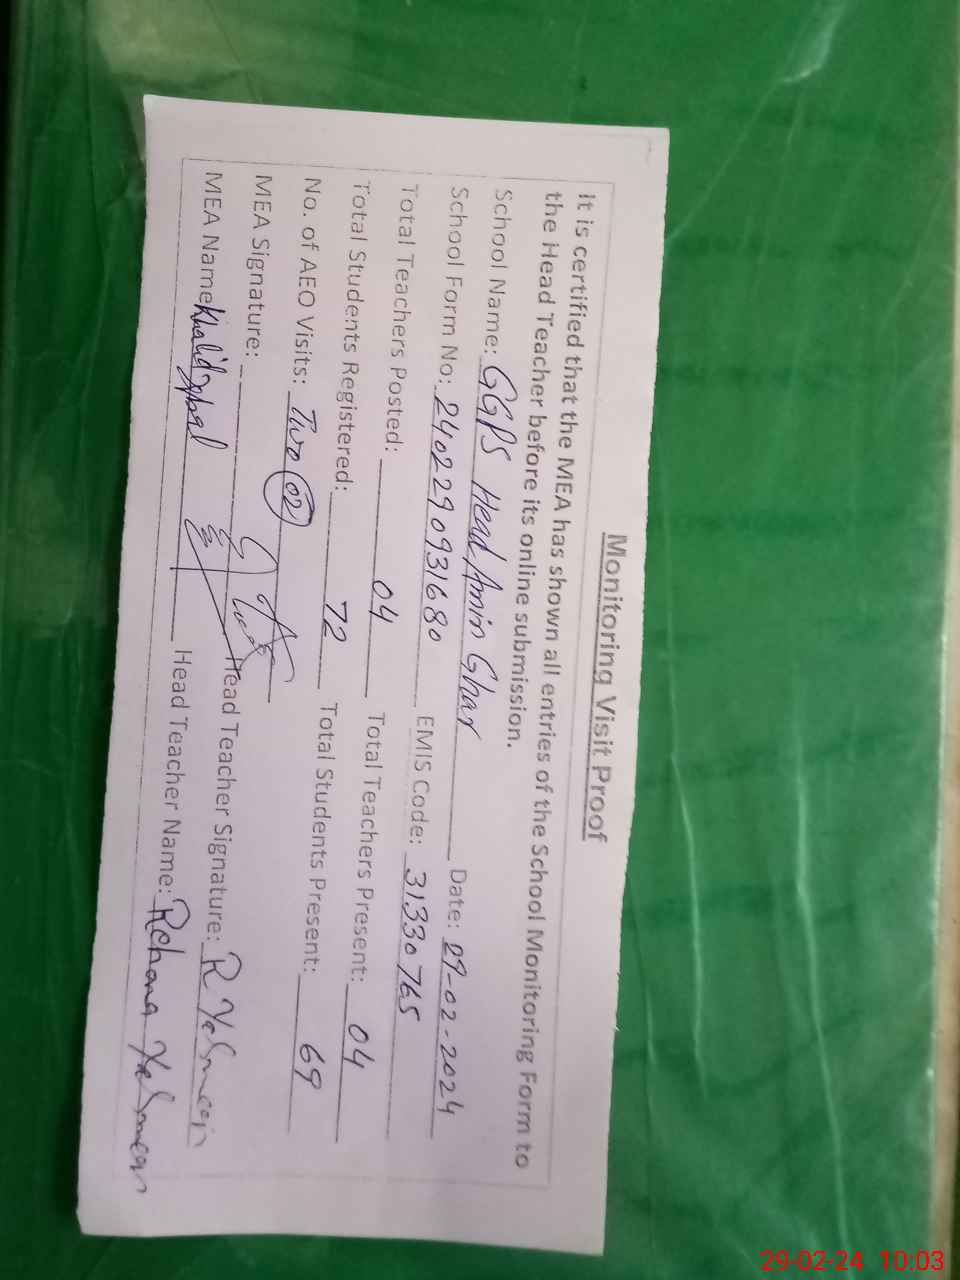 Monitoring Visit Proof
It is certified that the MEA has shown all entries of the School Monitoring Form to
the Head Teacher before its online submission.
School Name: GGPS Head Amin Ghar Date: 29-02-2024
School Form No: 2402290931680 EMIS Code: 31330765
Total Teachers Posted: 04 Total Teachers Present: 04
Total Students Registered: 72 Total Students Present: 69
No. of AEO Visits: Two 02
MEA Signature: Head Teacher Signature: R Yasmeen
MEA Name Khalid Iqbal Head Teacher Name: Rehana Yasmeen
29-02-24 10:03